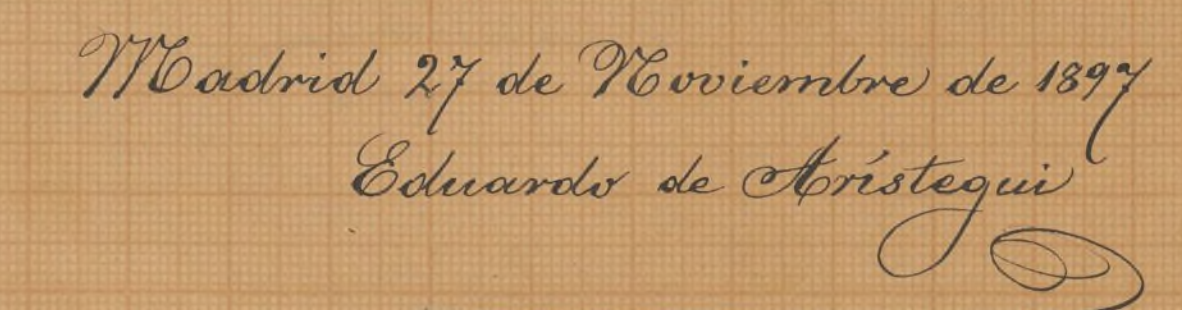 Madrid 27 de Noviembre de 1897
Eduardo de Arístegui